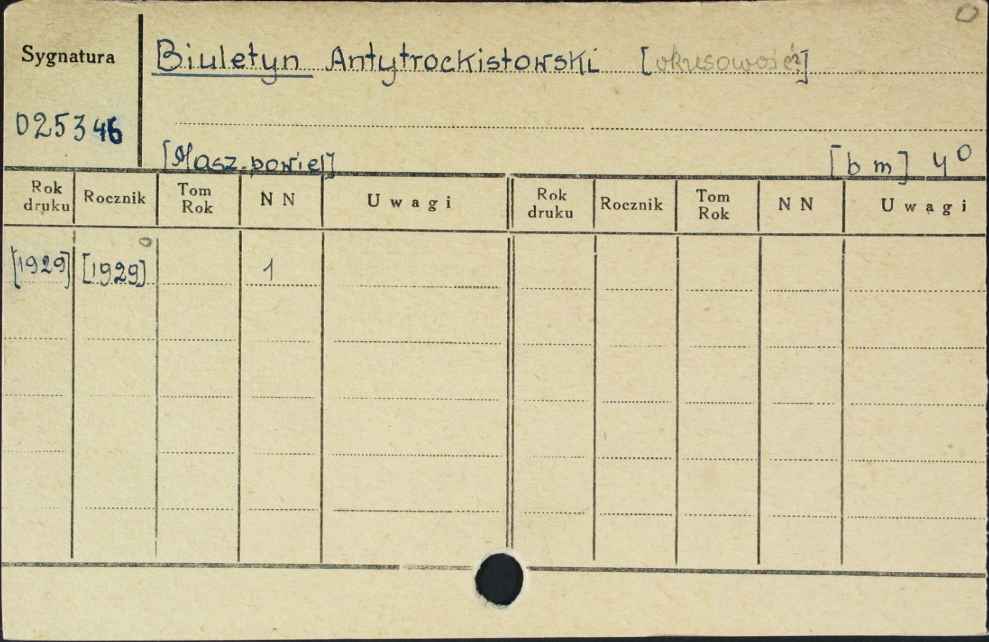 O
Sygnatura
Biuletyn Antytrockistowski [okresowość?]
025346
[Masz. powiel]
[b m] 4°
Rok druku Rocznik Tom Rok N N Uwagi Rok druku Rocznik Tom Rok N N Uwagi
[1929] [1929] 1